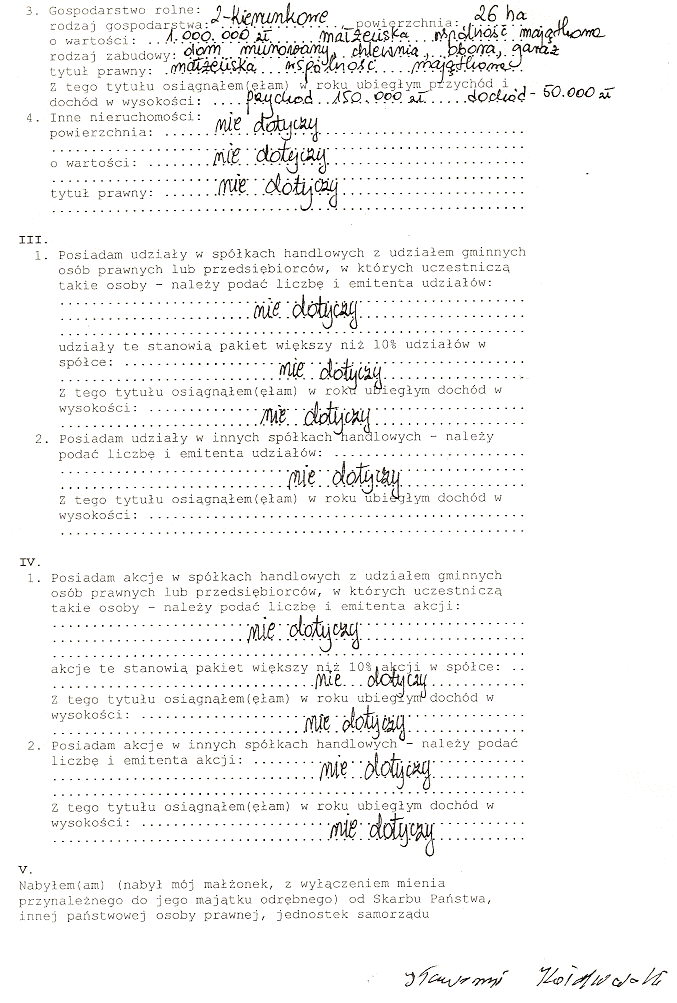 3. Gospodarstwo rolne:
rodzaj gospodarstwa: 2-kierunkowe, powierzchnia: 26 ha
o wartości: 1.000.000 zł małżeńska wspólność majątkowa
rodzaj zabudowy: dom murowany, chlewnia, obora, garaż
tytuł prawny: małżeńska wspólność majątkowa
Z tego tytułu osiągnąłem(ęłam) w roku ubiegłym przychód i
dochód w wysokości: przychód 150.000 zł dochód - 50.000 zł
4. Inne nieruchomości:
powierzchnia: nie dotyczy
o wartości: nie dotyczy
tytuł prawny: nie dotyczy
III.
1. Posiadam udziały w spółkach handlowych z udziałem gminnych
osób prawnych lub przedsiębiorców, w których uczestniczą
takie osoby - należy podać liczbę i emitenta udziałów:
nie dotyczy
udziały te stanowią pakiet większy niż 10% udziałów w
spółce:
nie dotyczy
Z tego tytułu osiągnąłem(ęłam) w roku ubiegłym dochód w
wysokości:
nie dotyczy
2. Posiadam udziały w innych spółkach handlowych - należy
podać liczbę i emitenta udziałów:
nie dotyczy
Z tego tytułu osiągnąłem(ęłam) w roku ubiegłym dochód w
wysokości:
IV.
1. Posiadam akcje w spółkach handlowych z udziałem gminnych
osób prawnych lub przedsiębiorców, w których uczestniczą
takie osoby - należy podać liczbę i emitenta akcji:
nie dotyczy
akcje te stanowią pakiet większy niż 10% akcji w spółce:
nie dotyczy
Z tego tytułu osiągnąłem(ęłam) w roku ubiegłym dochód w
wysokości:
nie dotyczy
2. Posiadam akcje w innych spółkach handlowych - należy podać
liczbę i emitenta akcji:
nie dotyczy
Z tego tytułu osiągnąłem(ęłam) w roku ubiegłym dochód w
wysokości:
nie dotyczy
V.
Nabyłem(am) (nabył mój małżonek, z wyłączeniem mienia
przynależnego do jego majątku odrębnego) od Skarbu Państwa,
innej państwowej osoby prawnej, jednostek samorządu